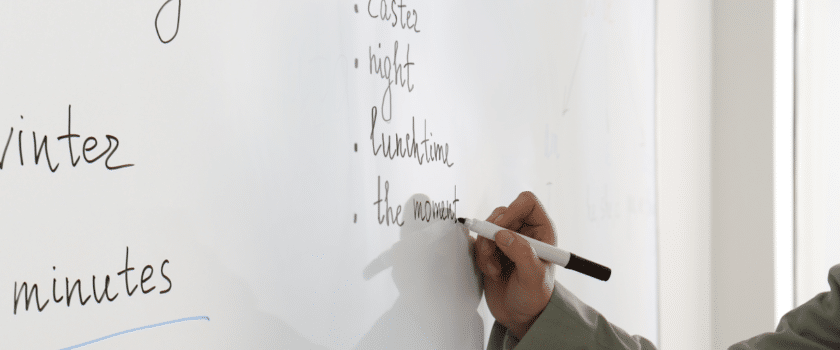 Easter
night
lunchtime
the moment
winter
minutes